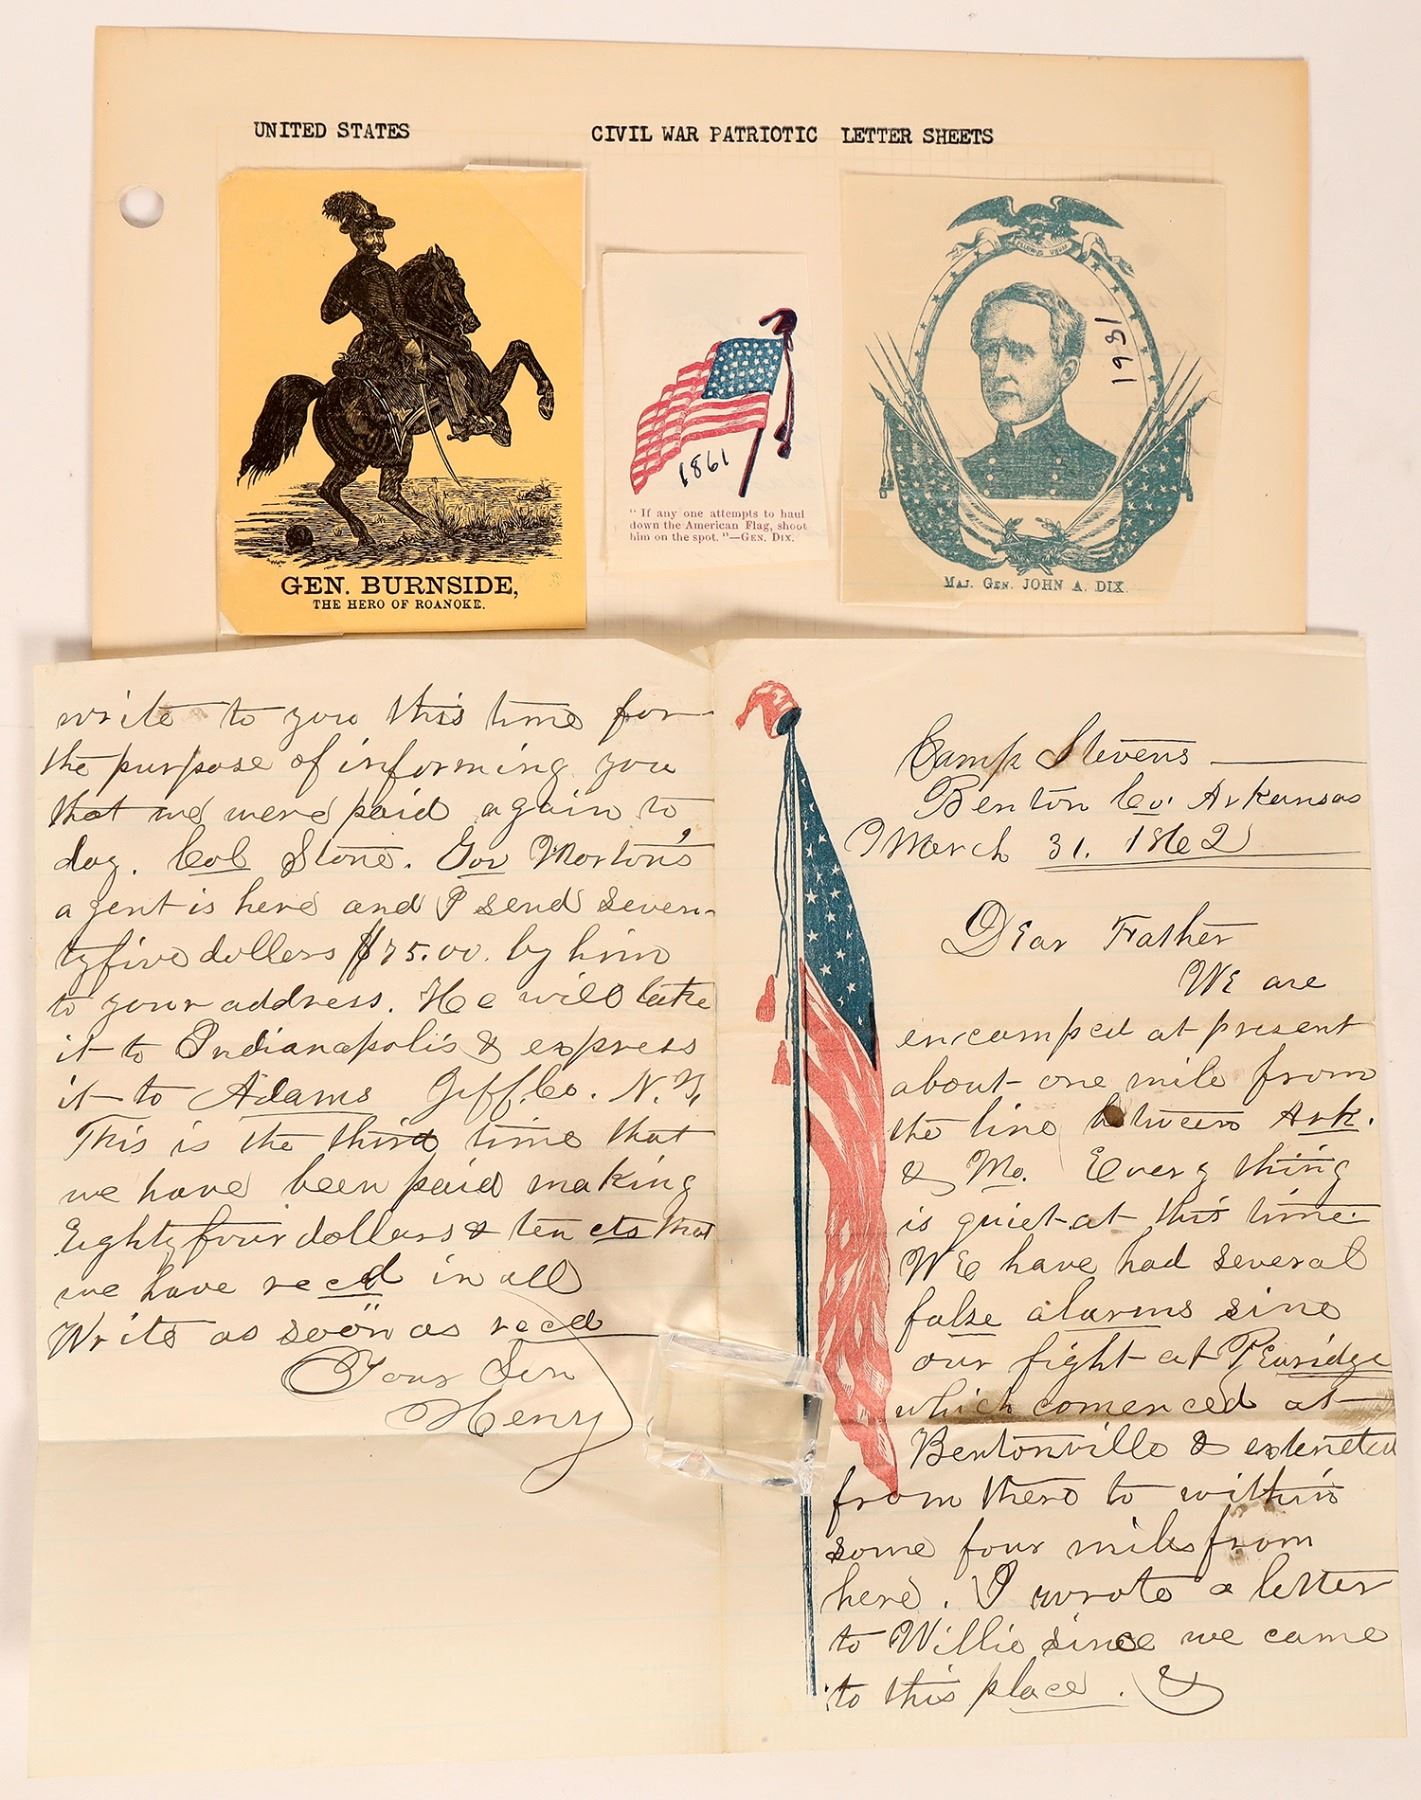 UNITED STATES
CIVIL WAR PATRIOTIC LETTER SHEETS
GEN. BURNSIDE,
THE HERO OF ROANOKE.
1861
" If any one attempts to haul
down the American Flag, shoot
him on the spot. "—GEN. DIX.
1861
MAJ. GEN. JOHN A. DIX.
Camp Stevens
Benton Co. Arkansas
March 31. 1862
Dear Father
We are
encamped at present
about one mile from
the line between Ark.
& Mo. Every thing
is quiet at this time.
We have had several
false alarms sinc
our fight at Pearidge
which comenced at
Bentonville & extended
from there to within
some four miles from
here. I wrote a letter
to Willie since we came
to this place. &
write to you this time for
the purpose of informing you
that we were paid again to
day. Col Stone. Gov Morton's
agent is here and I send seven-
tyfive dollers $75.00. by him
to your address. He will take
it to Indianapolis & express
it to Adams Jeff. Co. N.Y,
This is the third time that
we have been paid making
Eightyfour dollars & ten cts that
we have recd in all
Write as soon as recd
Your Son
Henry